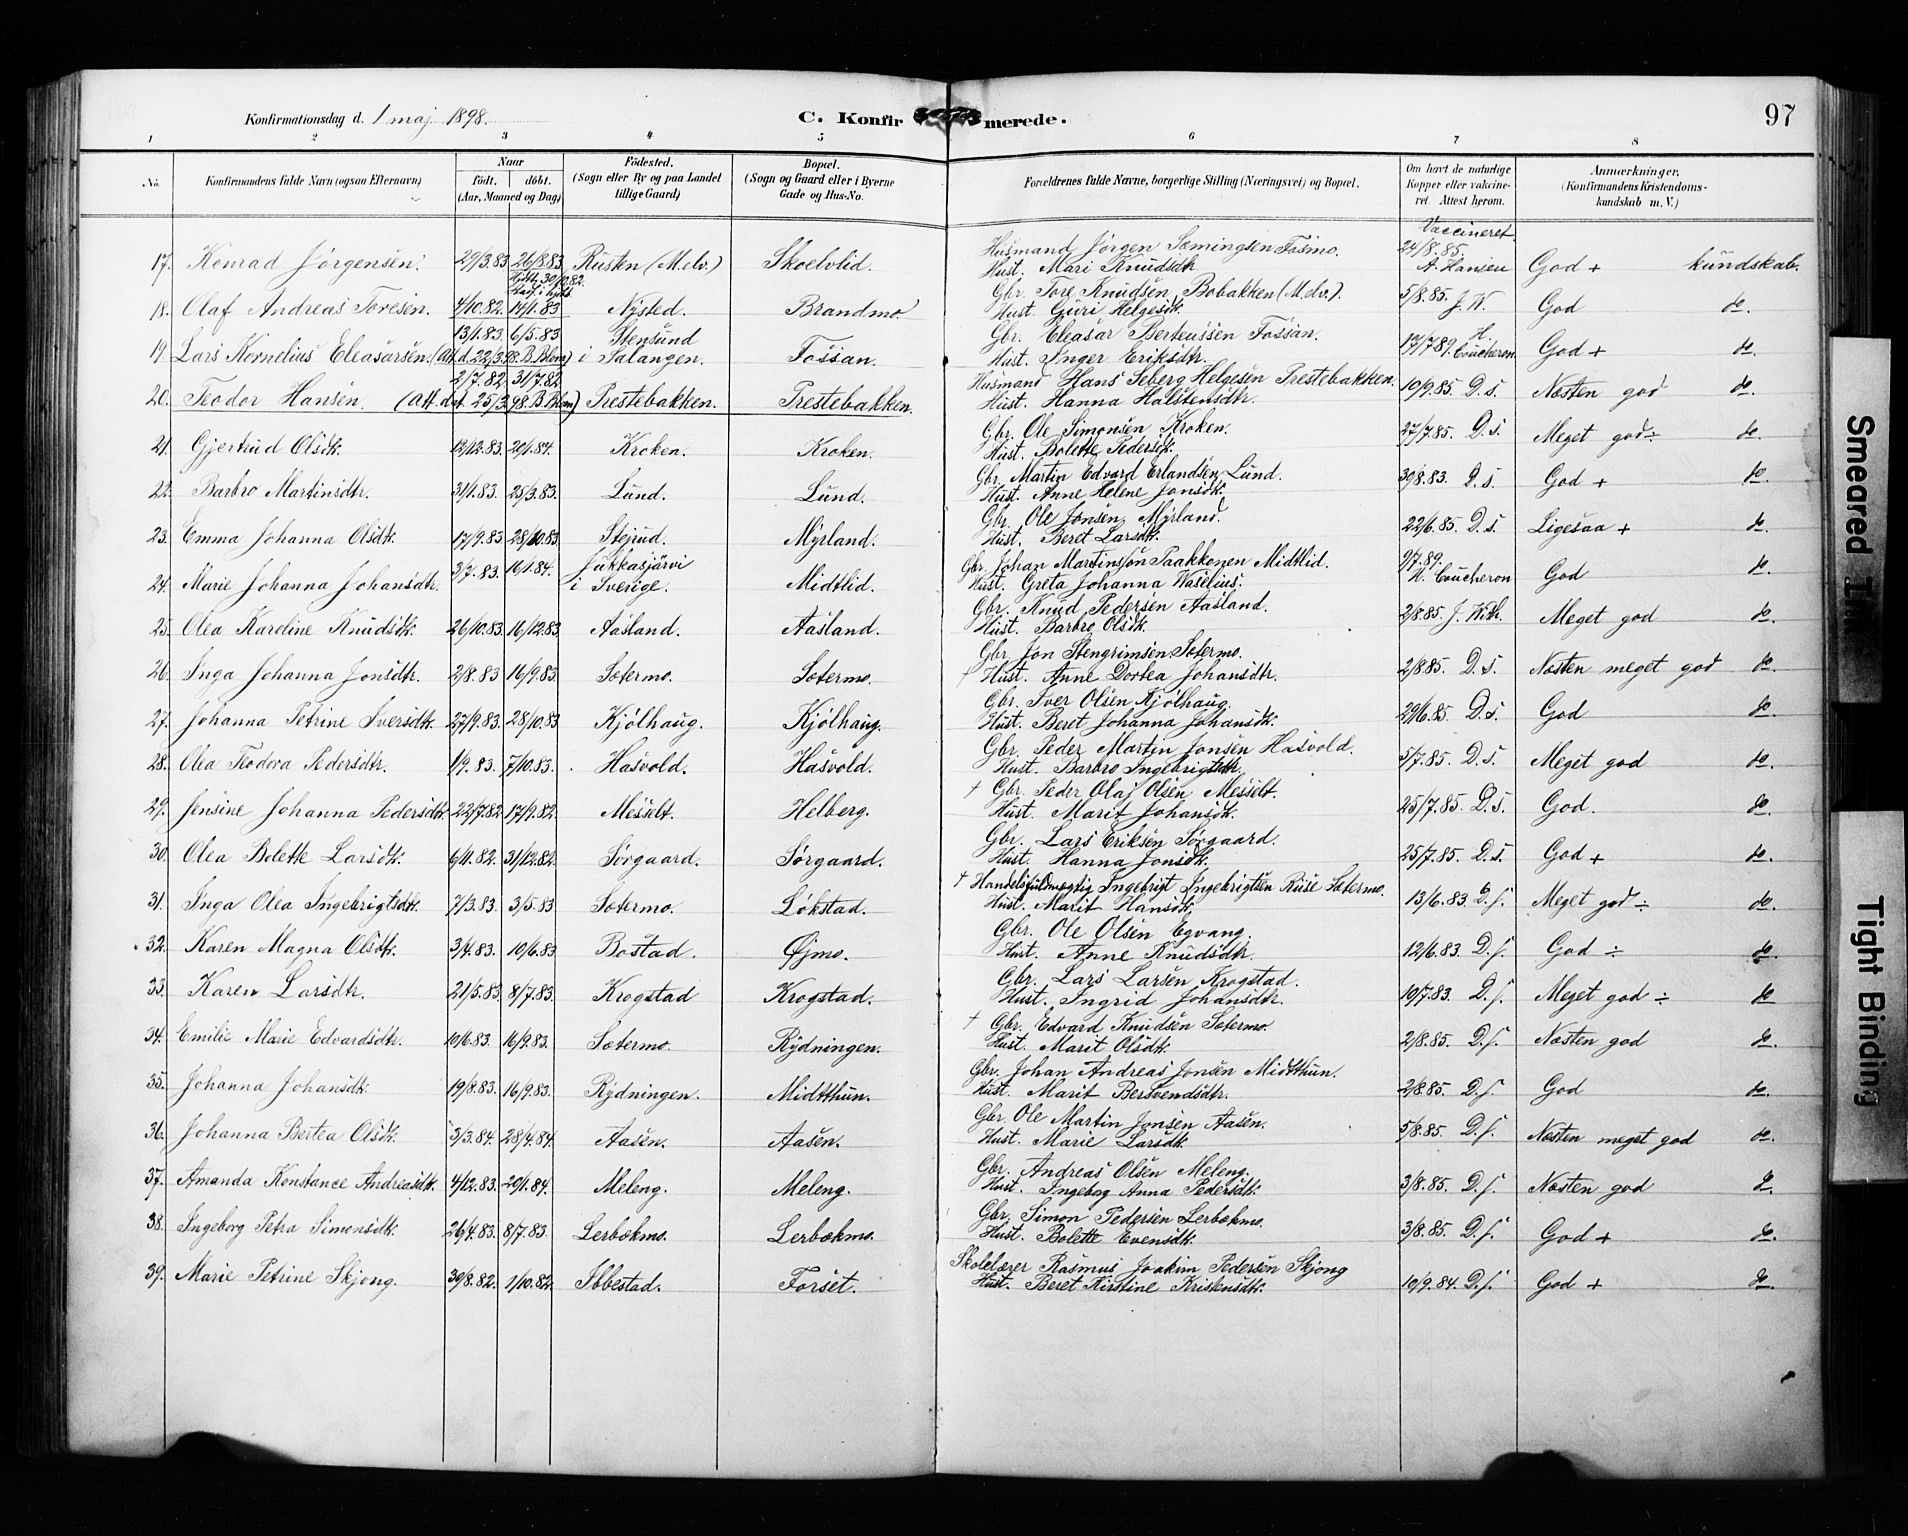 Konfirmationsdag d. 1 maj 1898.
C. Konfirmerede.
97
1 2 3 4 5 6 7 8
No. Konfirmandens fulde Navn (ogsaa Efternavn) Naar födt. döbt. (Aar, Maaned og Dag) Födested. (Sogn eller By og paa Landet tillige Gaard) Bopæl. (Sogn og Gaard eller i Byerne Gade og Hus-No. Forældrenes fulde Navne, borgerlige Stilling (Næringsvei) og Bopæl. Om havt de naturlige Kopper eller vakcineret. Attest herom. Anmærkninger. (Konfirmandens Kristendomskundskab m. V.)
17. Konrad Jørgensen. 29/3.83 26/8.83 Rusten (Melv.) Skoelvlid. Husmand Jørgen Sæmingsen Fosmo. Vaccineret 24/8.85. A. Hansen God + kundskab.
Hust. Mari Knudsdtr
18. Olaf Andreas Toresen. 4/10.82. 14/1.83 Nysted. Brandmo. Gbr. Tore Knudsen, Bobakken (Melv.). 5/8.85. J. W. God do.
Hjdt. 30/10.82. Stadf. i
Hust. Guri Helgesdtr.
19. Lars Kornelius Eleasarsen. (Att. d. 22/3.98. B. Blom) 13/1.83 6/5.83 Stensund i Salangen. Fossan. Gbr. Eleasar Berteussen Fossan. 17/7.89. H. Coucheron God + do.
Hust. Inger Eriksdtr.
20. Teodor Hansen. (Att. dat. 25/3.98. B. Blom) 2/7.82. 31/7.82 Prestebakken. Prestebakken. Husmand Hans Seberg Helgesen Prestebakken. 10/9.85. D. s. Næsten god do.
Hust. Hanna Halstensdtr.
21. Gjertrud Olsdtr. 12/12.83. 20/1.84. Kroken. Kroken. Gbr. Ole Simonsen Kroken. 27/7.85. D. s. Meget god ÷ do.
Hust. Bolette Pedersdtr.
22. Barbro Martinsdtr. 31/1.83. 25/3.83. Lund. Lund. Gbr. Martin Edvard Erlandsen Lund. 30/8.83. D. s. God + do.
Hust. Anne Helene Jonsdtr.
23. Emma Johanna Olsdtr. 17/9.83 28/10.83. Stejrud. Myrland. Gbr. Ole Jonsen Myrland. 22/6.85. D. s. Ligesaa + do.
Hust. Beret Larsdtr.
24. Marie Johanna Johansdtr. 3/7.83. 16/1.84. Jukkasjärvi i Sverige. Midtlid. Gbr. Johan Martinsson Paakkonen Midtlid. 9/7.89. H. Coucheron God do.
Hust. Greta Johanna Waselius.
25. Olea Karoline Knudsdtr. 26/10.83. 16/12.83. Aasland. Aasland. Gbr. Knud Pedersen Aasland. 2/8.85. J. With. Meget god do.
Hust. Barbro Olsdtr.
26. Inga Johanna Jonsdtr. 2/8.83 16/9.83. Sætermo. Sætermo. Gbr. Jon Stengrimsen Sætermo. 2/8.85. D. s. Næsten meget god do
† Hust. Anne Dortea Johansdtr.
27. Johanna Petrine Iversdtr. 27/9.83. 28/10.83. Kjølhaug. Kjølhaug. Gbr. Iver Olsen Kjølhaug. 29/6.85. D. s. God do.
Hust. Beret Johanna Johansdtr.
28. Olea Teodora Pedersdtr. 1/9.83. 7/10.83. Hasvold. Hasvold. Gbr. Peder Martin Jonsen Hasvold. 5/7.85. D. s. Meget god do.
Hust. Barbro Ingebrigtsdtr.
29. Jensine Johanna Pedersdtr. 22/7.82 17/9.82. Messelt. Helberg. † Gbr. Peder Olaj Olsen Messelt. 25/7.85. D. s. God. do.
Hust. Marit Johansdtr.
30. Olea Bolette Larsdtr. 6/11.82. 31/12.82. Sørgaard. Sørgaard. Gbr. Lars Eriksen Sørgaard. 25/7.85. D. s. God + do.
Hust. Hanna Jonsdtr.
31. Inga Olea Ingebrigtsdtr. 7/3.83. 3/5.83 Sætermo. Løkstad. † Handelsfuldmægtig Ingebrigt Ingebrigtsen Ruse Sætermo. 13/6.83. D. s. Meget god ÷ do.
Hust. Marit Hansdtr.
32. Karen Magna Olsdtr. 3/4.83. 10/6.83 Bostad. Øjmo. Gbr. Ole Olsen Egvang. 12/6.83. D. s. God ÷ do.
Hust. Anne Knudsdtr.
33. Karen Larsdtr. 21/5.83. 8/7.83. Krogstad Krogstad. Gbr. Lars Larsen Krogstad. 10/7.83. D. s. Meget god ÷ do
Hust. Ingrid Johansdtr.
34. Emilie Marie Edvardsdtr. 10/6.83. 16/9.83. Sætermo. Rydningen. † Gbr. Edvard Knudsen Sætermo. 2/8.85. D. s. Næsten god do.
Hust. Marit Olsdtr.
35. Johanna Johansdtr. 19/8.83. 16/9.83. Rydningen. Midtthun. Gbr. Johan Andreas Jonsen Midtthun. 2/8.85. D. s. God do.
Hust. Marit Bersvendsdtr.
36. Johanna Bertea Olsdtr. 3/3.84. 28/4.84. Aasen. Aasen. Gbr. Ole Martin Jonsen Aasen. 5/8.85. D. s. Næsten meget god do.
Hust. Marie Larsdtr.
37. Amanda Konstance Andreasdtr. 4/12.83. 29/1.84. Meleng. Meleng. Gbr. Andreas Olsen Meleng. 3/8.85. D. s. Næsten god do.
Hust. Ingeborg Anna Pedersdtr.
38. Ingeborg Petra Simonsdtr. 26/4.83 8/7.83. Lerbækmo. Lerbækmo. Gbr. Simon Pedersen Lerbækmo. 3/8.85. D. s. God + do.
Hust. Bolette Evensdtr.
39. Marie Petrine Skjong. 30/8.82. 1/10.82. Ibbestad. Forset. Skolelærer Rasmus Joakim Pedersen Skjong 10/9.84. D. s. God + do.
Hust. Beret Kirstine Kristensdtr.
Smeared Ink
Tight Binding